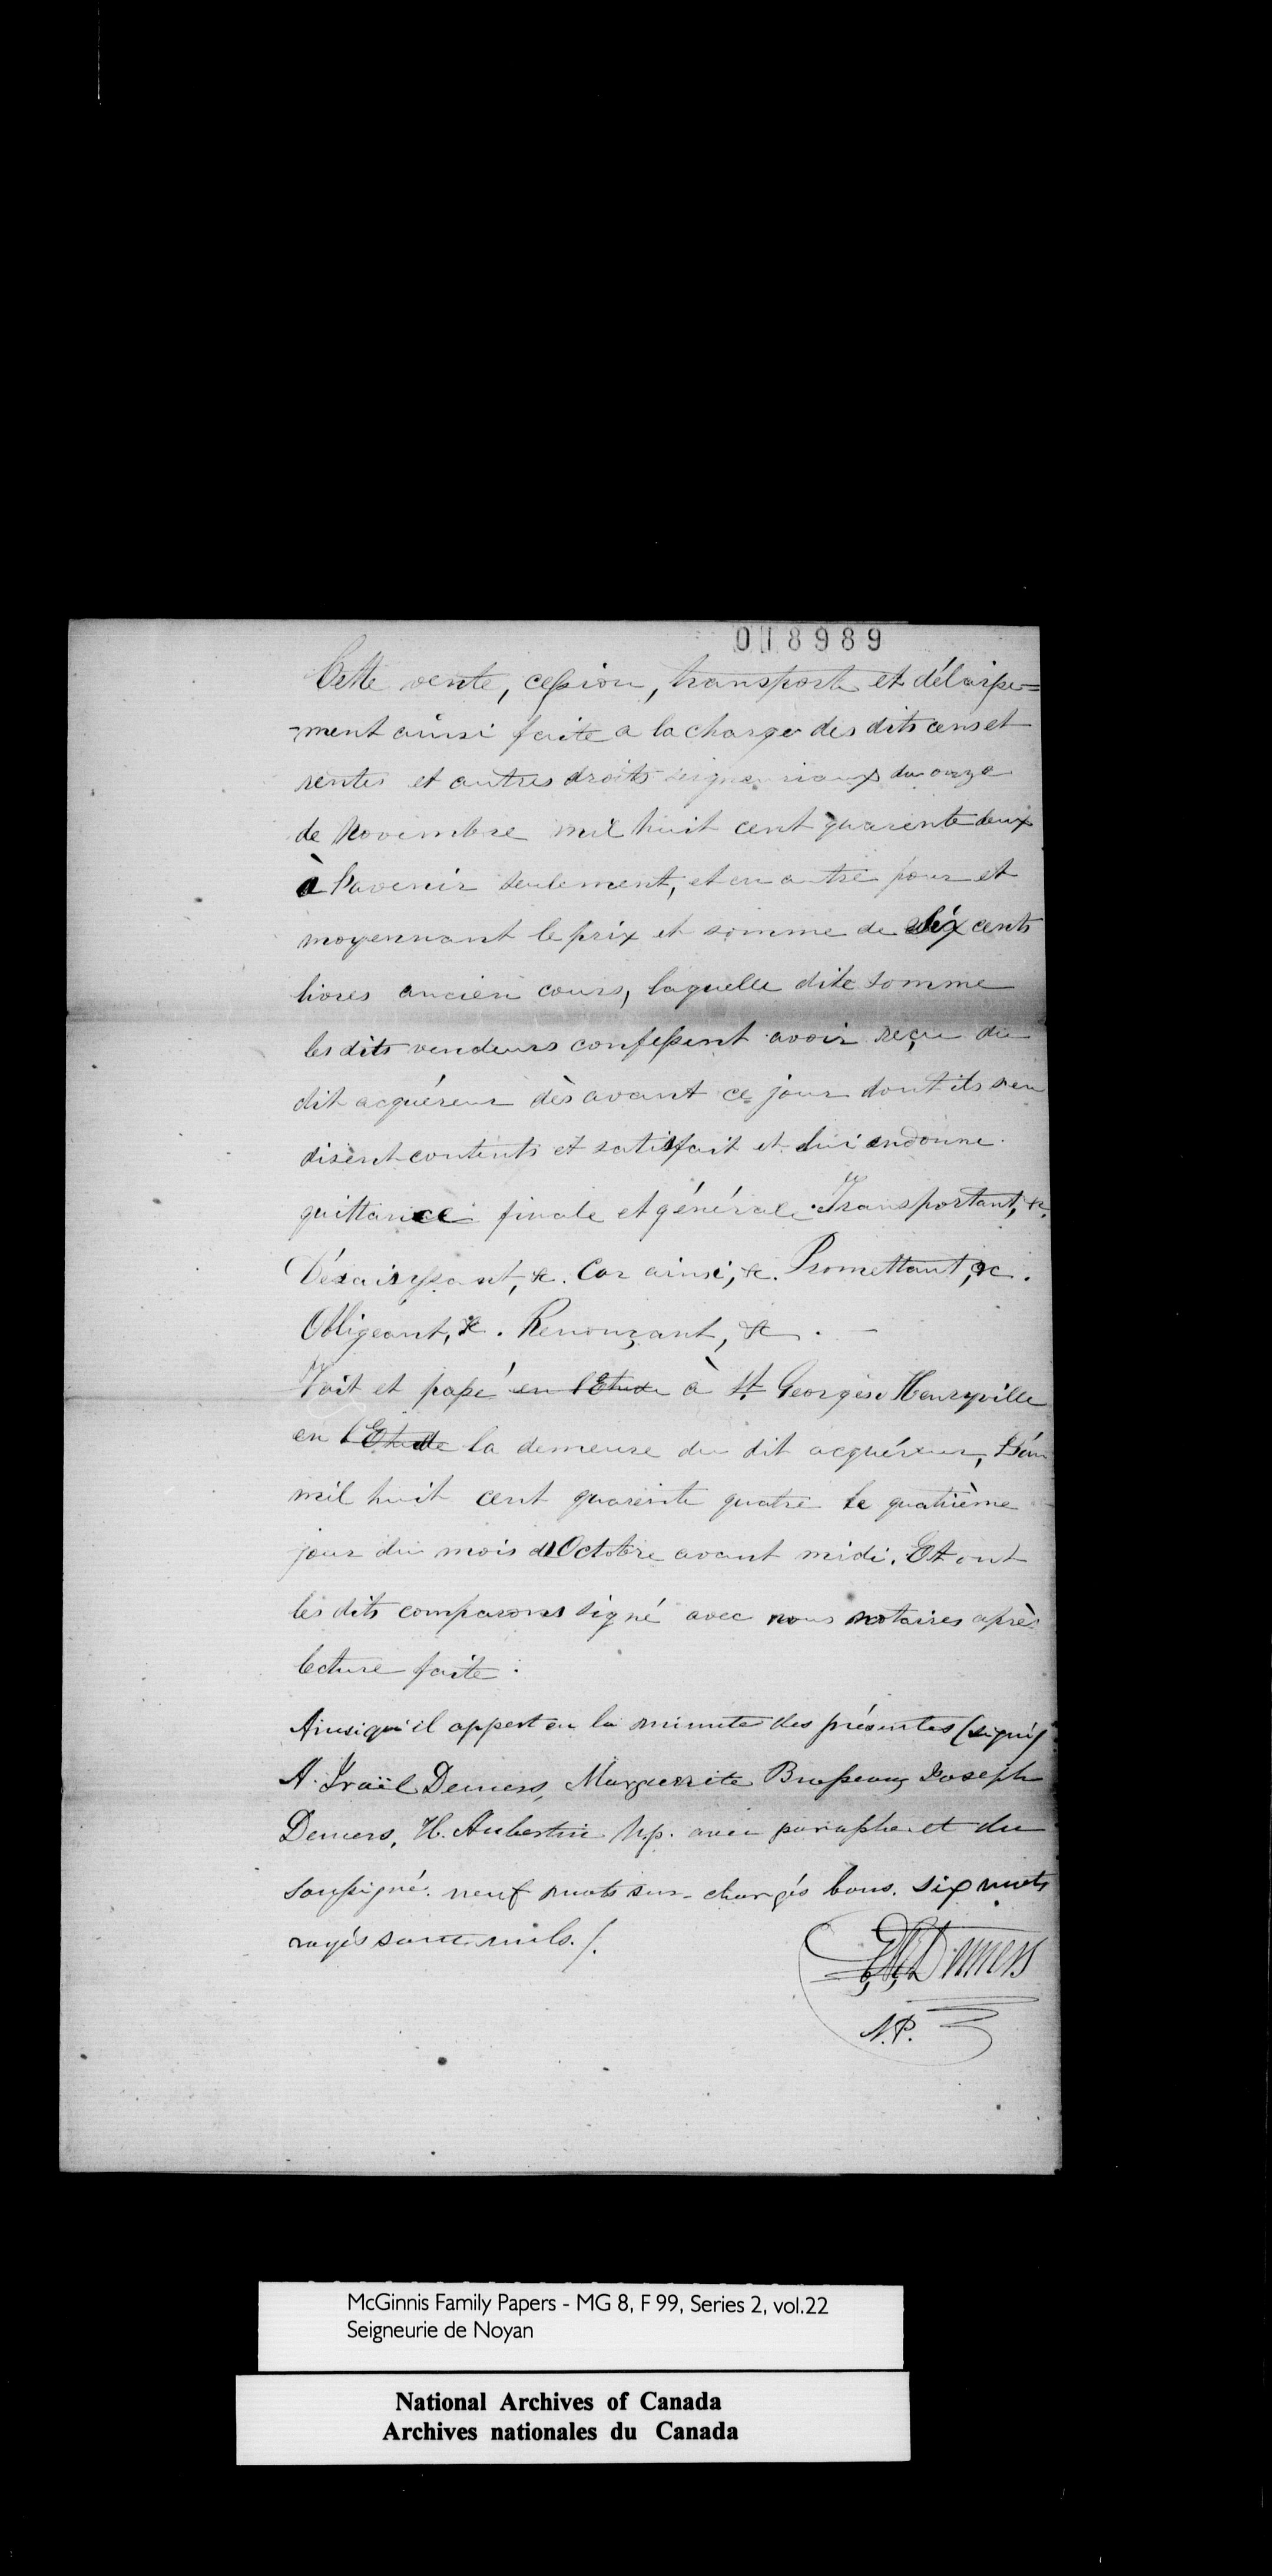 018989
Cette vente, cession, transport et délaisse=
=ment ainsi faite a la charge des dits cens et
rentes et autres droits seigneuriaux du onze
de Novembre mil huit cent quarente deux
à l'avenir seulement, et en outre pour et
moyennant le prix et somme de six cents
livres ancien cours, laquelle dite somme
les dits vendeurs confessent avoir reçu du
dit acquéreur dès avant ce jour dont ils s'en
disent contents et satisfait et lui en donne
quittance finale et générale. Transportant, &c.
Désaisissant, &c. Car ainsi, &c. Promettant, &c.
Obligeant, &c. Renonçant, &c. —
Fait et passé en l'Etude à St Georges Henryville
en l'Etude la demeure du dit acquéreur, L'an
mil huit cent quarente quatre le quatrième
jour du mois d'Octobre avant midi. Et ont
les dits comparans signé avec nous notaires après
lecture faite :
Ainsi qu'il appert en la minute des présentes (signé)
A. Israël Demers, Marguerite Brosseau, Joseph
Demers, H. Aubertin N.p. avec paraphe et du
soussigné. neuf mots sur-chargés bons. six mots
rayés sont nuls./.
Demers
N.P.
McGinnis Family Papers - MG 8, F 99, Series 2, vol.22
Seigneurie de Noyan
National Archives of Canada
Archives nationales du Canada